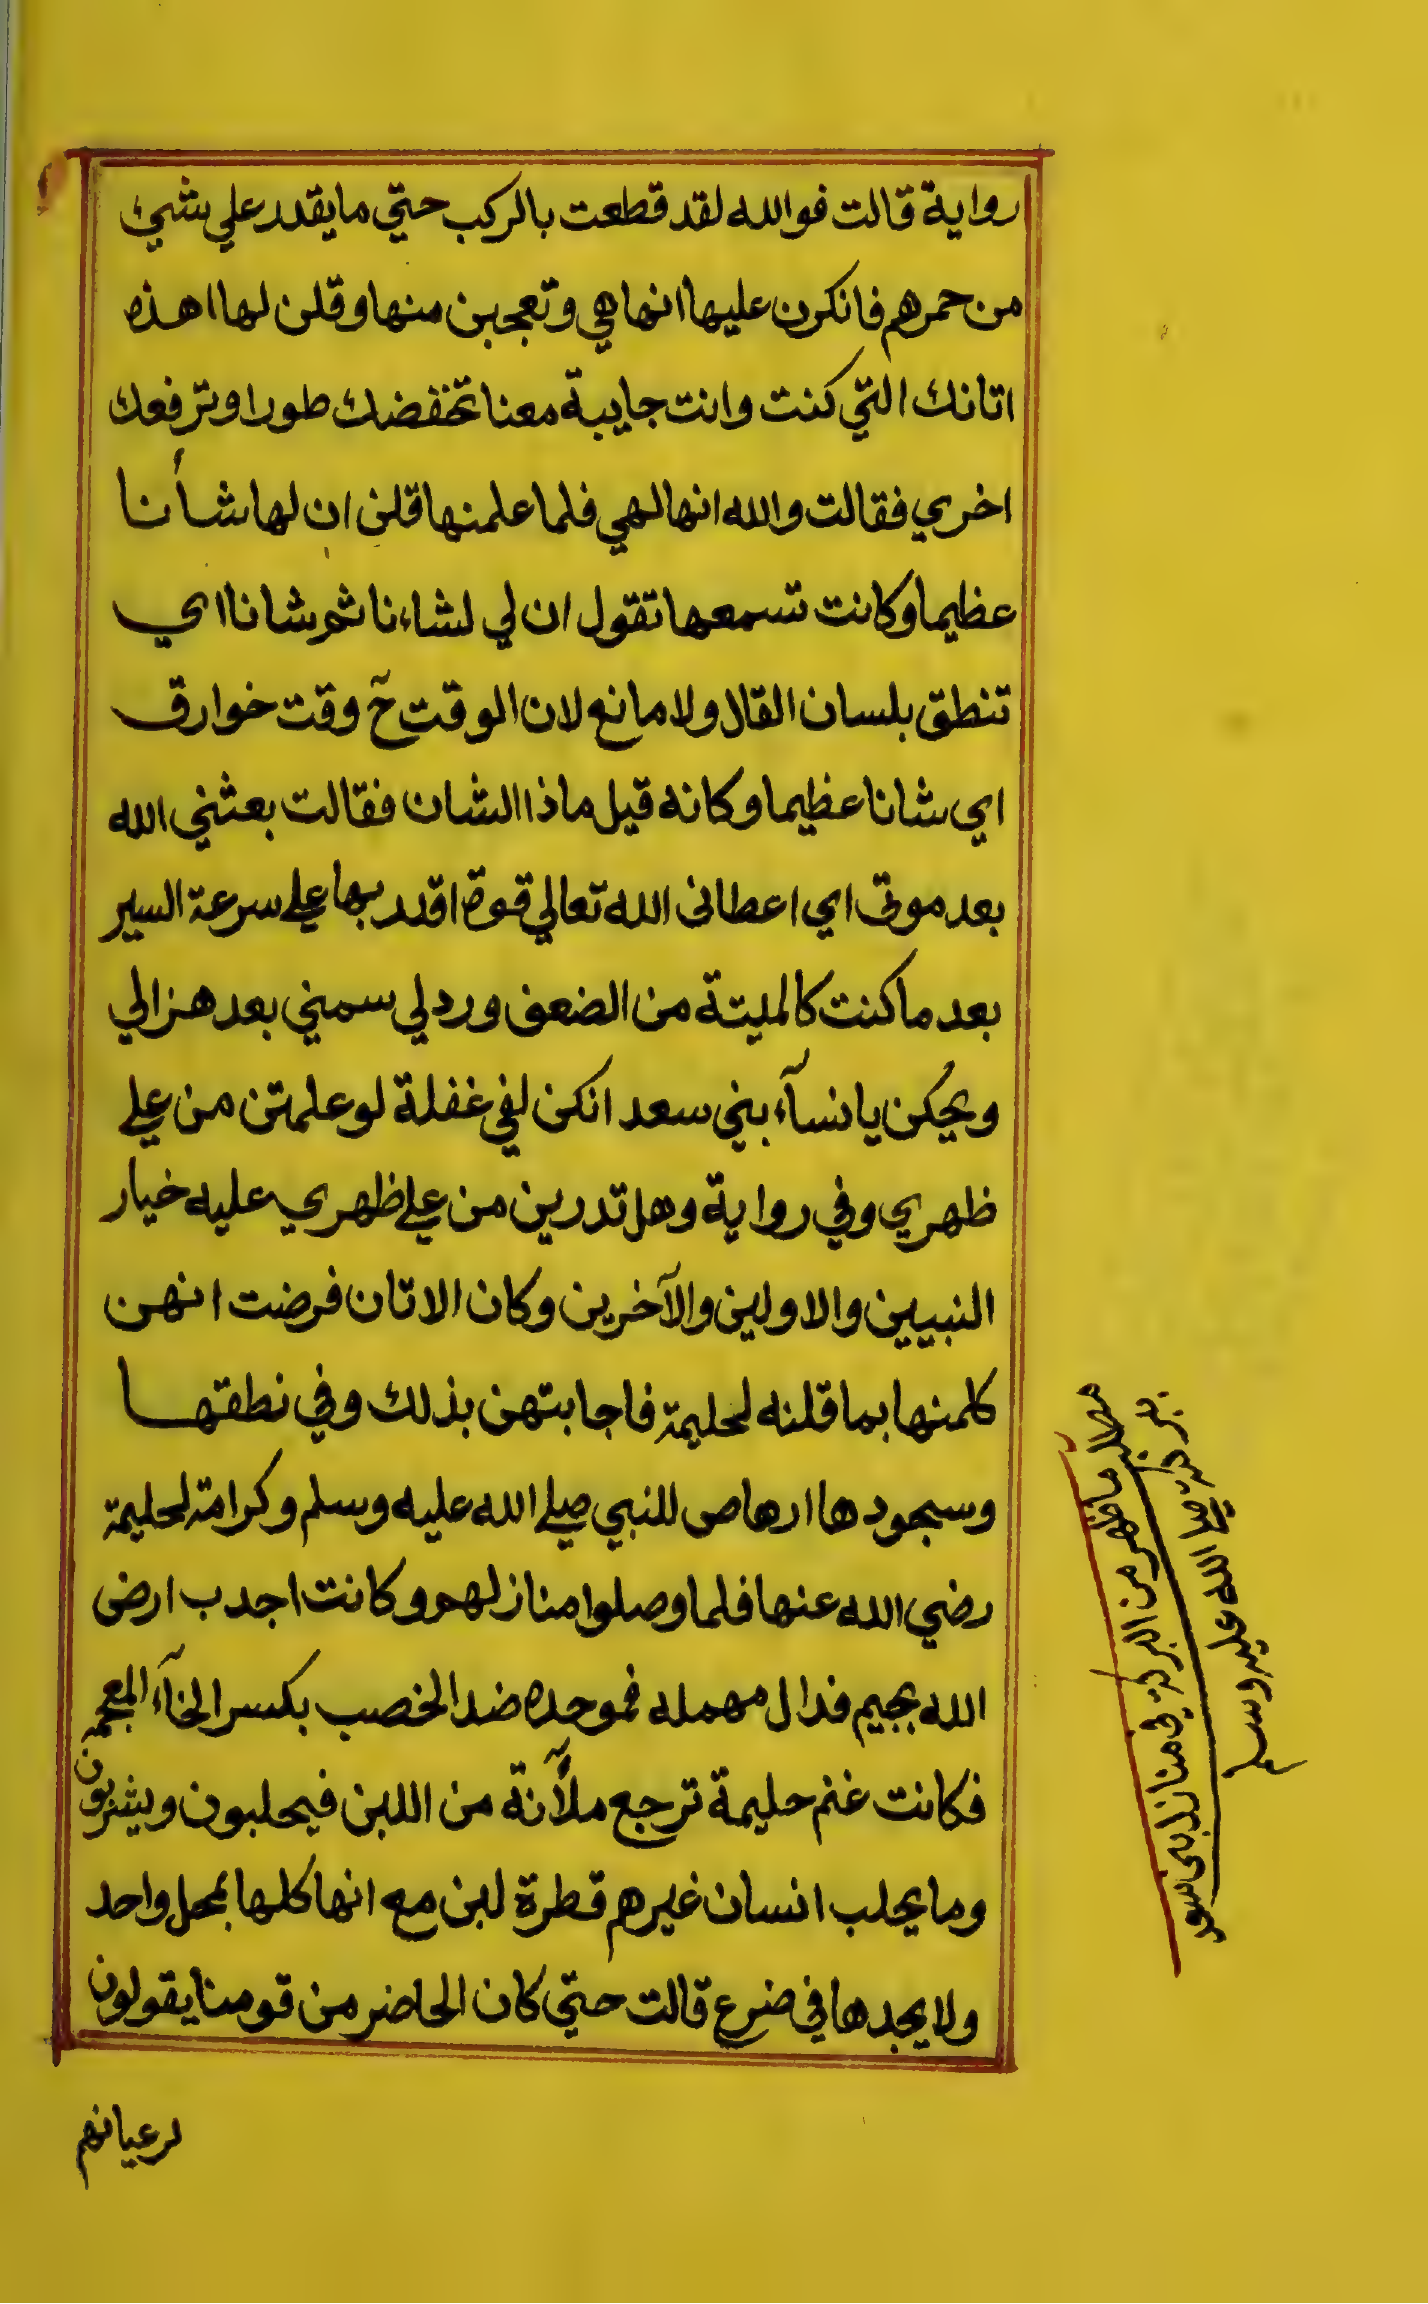 رواية قالت فوالله لقد قطعت بالركب حتي ما يقدر علي شيئ
من حمرهم فانكرن عليها انها هي وتعجبن منها وقلن لها اهذه
اتانك التي كنت وانت جايية معنا تخفضك طورا وترفعك
اخري فقالت والله انها لهي فلما علمنها قلن ان لها شأنا
عظيما وكانت تسمعها تقول ان لي لشاءنا ثم شانا اي
تنطق بلسان القال ولا مانع لان الوقت ح وقت خوارق
اي شانا عظيما وكانه قيل ماذا الشان فقالت بعثني الله
بعد موتي اي اعطاني الله تعالي قوة اقدر بها علي سرعة السير
بعد ما كنت كالميتة من الضعف ورد لي سمني بعد هزالي
ويحكن يا نسآء بني سعد انكن لفي غفلة لو علمتن من علي
ظهري وفي رواية وهل تدرين من علي ظهري عليه خيار
النبيين والاولين والآخرين وكان الاتان فرضت انهن
كلمنها بما قلنه لحليمة فاجابتهن بذلك وفي نطقها
وسجودها ارهاص للنبي صلي الله عليه وسلم وكرامة لحليمة
رضي الله عنها فلما وصلوا منازلهم وكانت اجدب ارض
الله بجيم فدال مهمله فموحده ضد الخصب بكسر الخآء المعجمة
فكانت غنم حليمة ترجع ملآنة من اللبن فيحلبون ويشربون
وما يحلب انسان غيرهم قطرة لبن مع انها كلها بمحل واحد
ولا يجدها في ضرع قالت حتي كان الحاضر من قومنا يقولون
لرعيانهم
مطلب ما ظهر من البركة في منازل بني سعد
ببركته صلي الله عليه وسلم